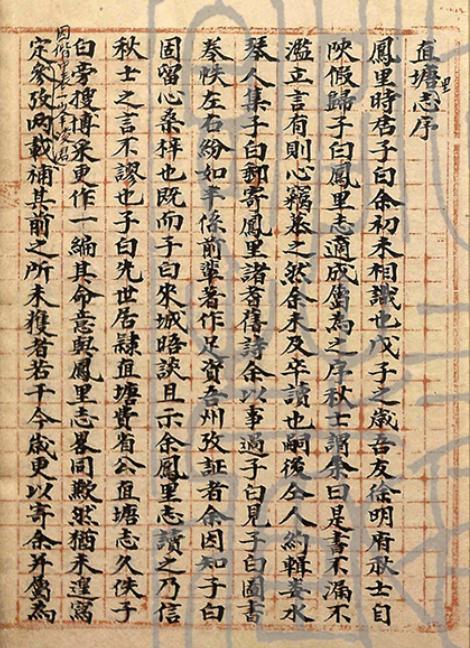 直塘里志序
鳳里時君子白余初未相識也戊子之歲吾友徐明府秋士自
陝假歸子白鳳里志適成屬為之序秋士謂余曰是書不漏不
濫立言有則心竊慕之然余未及卒讀也嗣後仝人約輯婁水
琴人集子白郵寄鳳里諸耆舊詩余以事過子白見子白圖書
卷帙左右紛如半係前輩著作足資吾州攷証者余因知子白
固留心桑梓也既而子白來城晤談且示余鳳里志讀之乃信
秋士之言不謬也子白先世居隸直塘費省公直塘志久佚子
白旁搜博采更作一編其命意與鳳里志畧同歉然猶未遑寫
定參攷兩載補其前之所未獲者若干今歲更以寄余并屬為